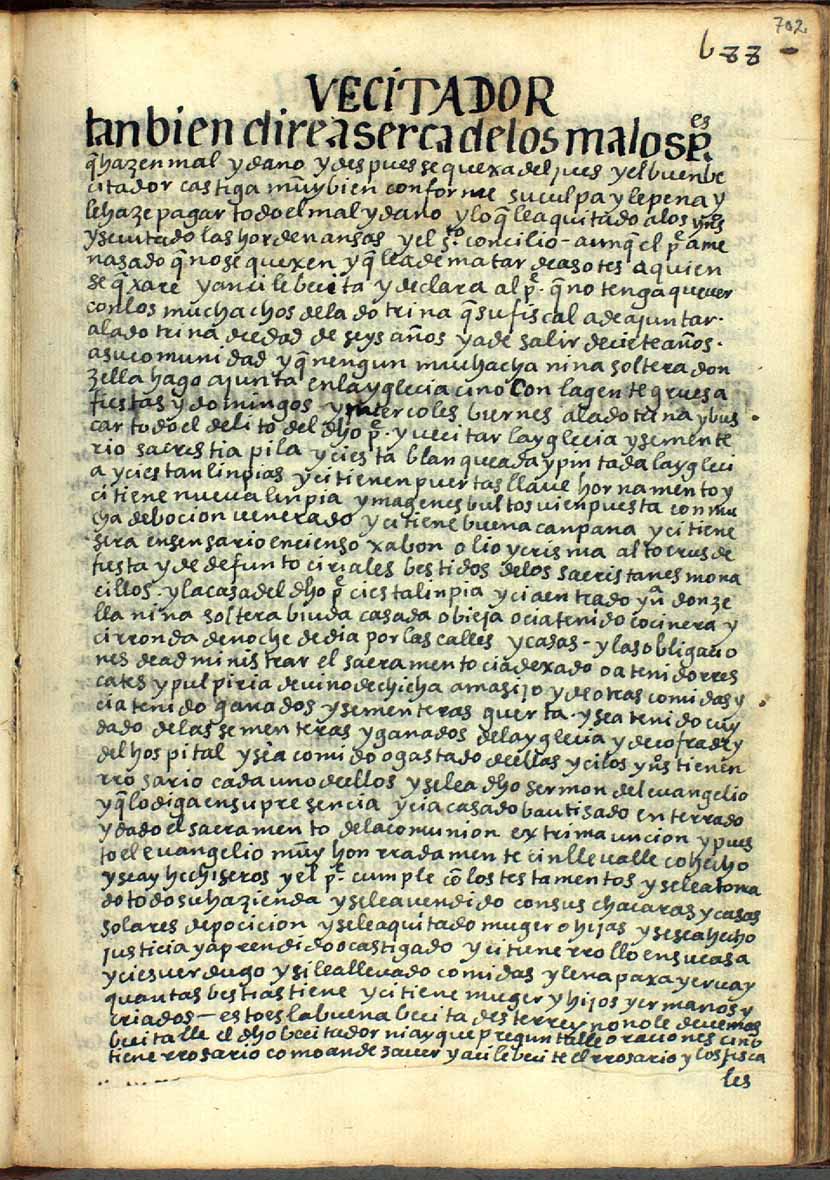 702
688
VECITADOR
tanbien direaserca delos malos p.es
q̃ hazen mal y dano y despues se quexa del jues y el buen be
citador castiga muy bien conforme su culpa y le pena y
le haze pagar todo el mal y dano y lo q̃ lea quitado a los yn̄s
y secutado las hordenansas y el s.to concilio - aunq̃ el p.e ame
nasado q̃ no se quexen y q̃ lea de matar de asotes a quien
se q̃xare y anci le becita y declara al p.e q̃ no tenga que uer
con los muchachos dela dotrina q̃ su fiscal a de ajuntar.
ala dotrina de edad de seys años y a de salir de ciete años.
a su comunidad y q̃ nengun muchacha nina soltera don
zella hago ajunta en la yglecia cino con la gente gruesa
fiestas y domingos y miercoles biernes a la dotrina y bus
car todo el delito del dho p.e y vecitar la yglecia y semente
rio sacrestia pila y ci esta blanqueada y pintada la ygleci
a y ci estan linpias y ci tienen puertas llaue hornamento y
ci tiene nueua linpia ymagenes bultos uien puesta con mu
cha debocion uenerado y ci tiene buena canpana y ci tiene
sera ensensario encienso xabon olio y crisma alto crus de
fiesta y de defunto ciriales bestidos de los sacristanes mona
cillos - y la casa del dho p.e ci esta linpia y ci a entrado yn̄a donze
lla nina soltera biuda casada o bieja o ci a tenido cocinera y
ci rronda de noche de dia por las calles y casas - y las obligacio
nes de administrar el sacramento ci a dexado o a tenido rres
cates y pulpiria de uino de chicha amasijo y de otras comidas y
ci a tenido ganados y sementeras guerta - y se a tenido cuy
dado de las sementeras y ganados dela yglecia y de cofradr y
del hospital y se a comido o gastado de ellas y ci los yn̄s tienen
rrosario cada uno de ellos y se le a dho sermon del euangelio
y q̃ lo diga en su presencia y ci a casado bautisado enterrado
y dado el sacramento dela comunion extrimauncion y pues
to el euangelio muy honrradamente cin lleualle cohecho
y se ay hechiseros y el p.e cumple cō los testamentos y se le a toma
do todo su hazienda y se le a uendido con sus chacaras y casas
solares de pocicion y se le a quitado muger o hijas y se se a hecho
justicia y a prendido o castigado y ci tiene rrollo en su casa
y ci es uerdugo y si le a lleuado comidas y lena paxa yerua y
quantas bestias tiene y ci tiene muger y hijos y ermanos y
criados - esto es la buena becita deste rreyno no le deuemos
becitalle el dho becitador ni ay que preguntalle oraciones cino
tiene rrosario como an de sauer y aci le becite el rrosario y los fisca
les